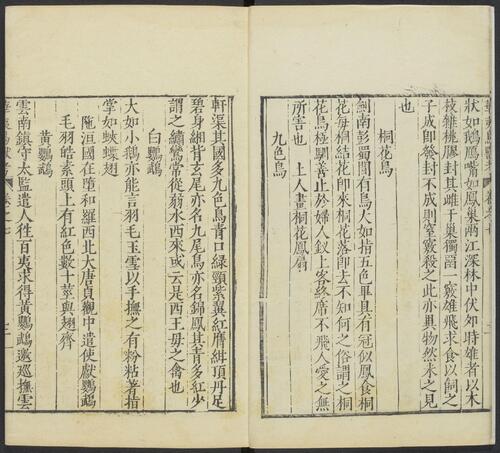 狀如鵝鷹嘴如鳳巢兩江深林中伏如時雄者以木
枝雜桃膠封其雌于巢獨留一竅雄飛求食以飼之
子成即發封不成則窒竅殺之此亦異物然未之見
也
桐花鳥
劍南彭蜀間有鳥大如指五色畢具有冠似鳳食桐
花每桐結花即來桐花落即去不知何之俗謂之桐
花鳥極馴善止於婦人釵上客終席不飛人愛之無
所害也 上人畫桐花鳳扇
九色鳥
軒渠其國多九色鳥青口綠頸紫翼紅膺紺頂丹足
碧身緗背玄尾亦名九尾鳥亦名錦鳳其青多紅少
謂之繡鸞常從弱水西來或云是西王母之禽也
白鸚鵡
大如小鵝亦能言羽毛玉雪以手撫之有粉粘著指
掌如蛺蝶翅
陁洹國在墮和羅西北大唐貞觀中遣使獻鸚鵡
毛羽皓素頭上有紅色數十莖與翅齊
黃鸚鵡
雲南鎮守太監遣人往百夷求得黃鸚鵡邀巡撫雲
卷之七